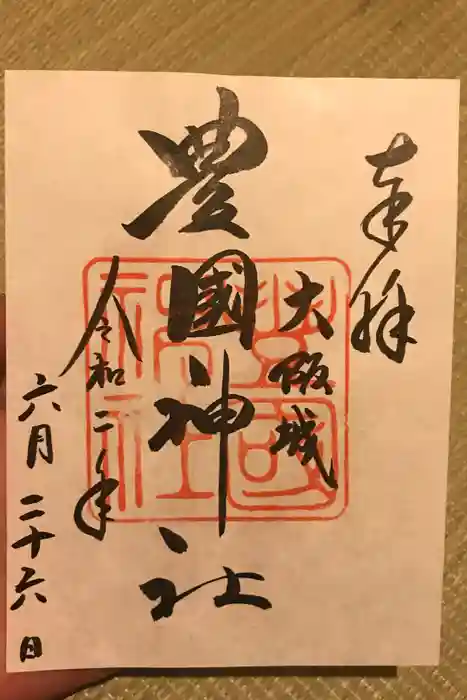 奉拝
大阪城
豊國神社
豊國神社
令和二年
六月二十六日